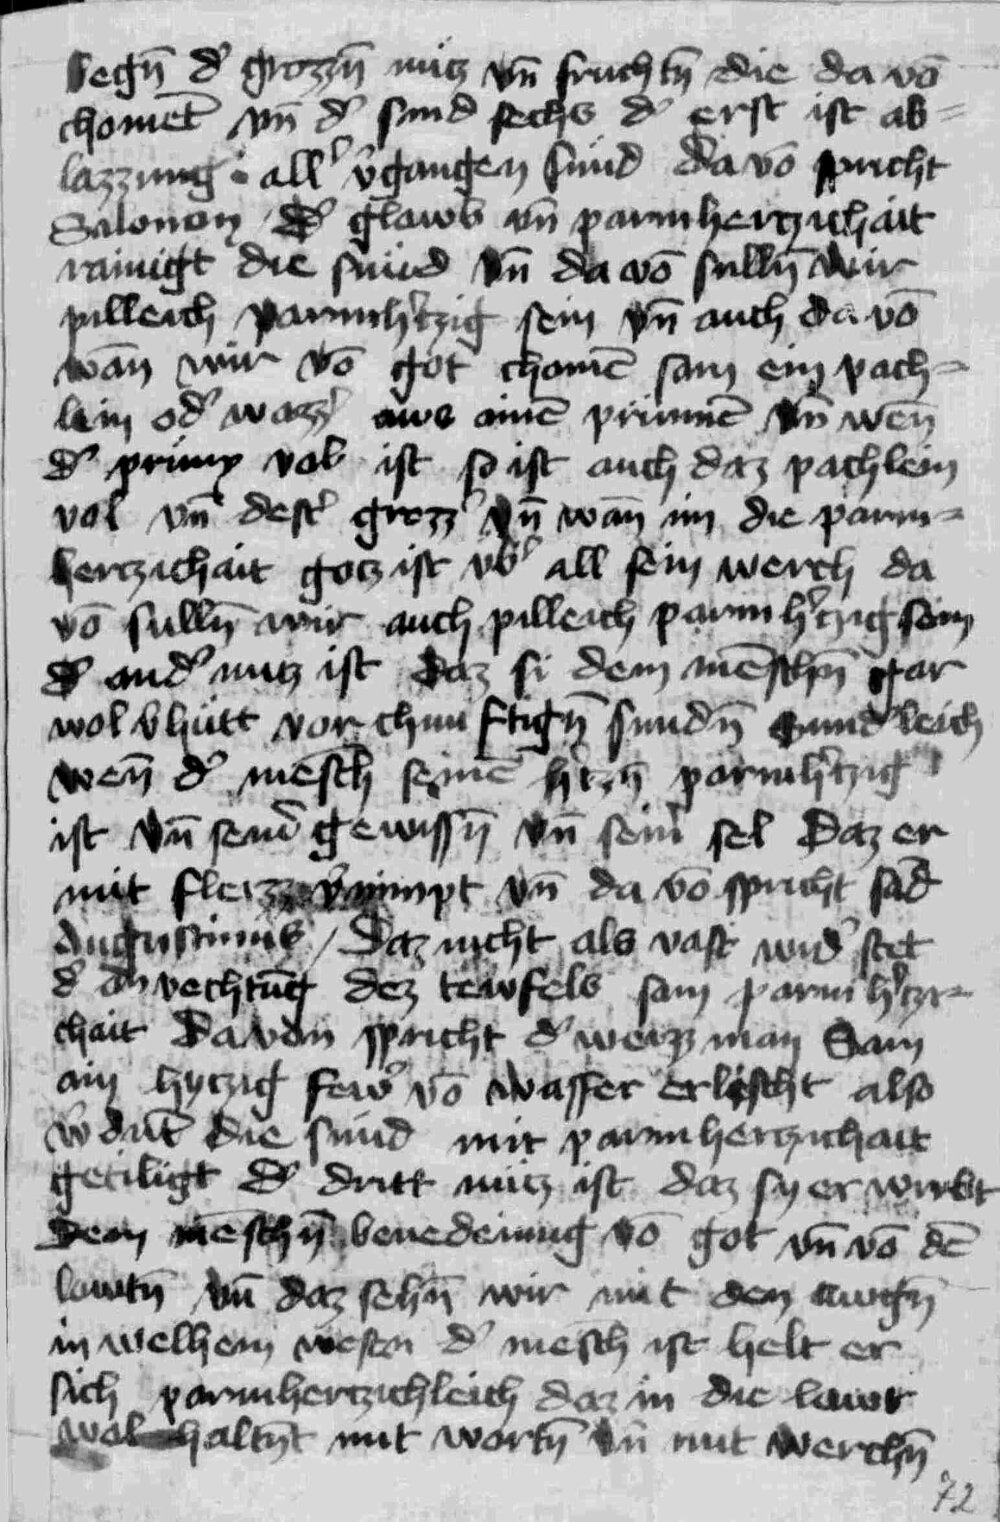 segn̄ d' grozzn̄ nücz vn̄ fruchtn̄ die da vō
chomēt vn̄ d' sind sechs d' erst ist ab=
lazzung all' v'gangen sünd da vō spricht
Salomon / d' glawb vn̄ parmherczichait
rainigt die sünd vn̄ da vō sulln̄ wir
pilleich parmh'tzig sein vn̄ auch da vō
wān wir vō got chomē sam ein pach=
lein od' wazz' aws ainē prünnē vn̄ wen̄
d' prunn vol ist so ist auch daz pachlein
vol vn̄ dest' grozz' vn̄ wān nu die parm=
herczichait gotz ist vb' all sein werch da
vō sulln̄ wir auch pilleich parmh'tzig sein
d' and' nutz ist daz si dem mēschn̄ gar
wol v'hütt vor chumftign̄ sundn̄ sund'leich
wen̄ d' mēsch seinē h'tzn̄ parmh'tzig
ist vn̄ sein' gewissn̄ vn̄ sein' sel Daz er
mit fleizz v'nimpt vn̄ da vō spricht sād
Augustinus / Daz nicht als vast wid' stet
d' anvechtūg dez tewfels sam parmh'tzi=
chait Da von spricht d' weyz man Sam
ain hytzig few' vō wasser erlischt also
w'dnt die sünd mit parmherczichait
getiligt d' dritt nücz ist daz sy er wirbt
dem mēschn̄ benedeiung vō got vn̄ vō dē
lawtn̄ vn̄ daz sehn̄ wir mit den awgn̄
in welhem wesen d' mēsch ist helt er
sich parmherczichleich daz in die lawt
wol haltn̄t mit wortn̄ vn̄ mit werchn̄
72